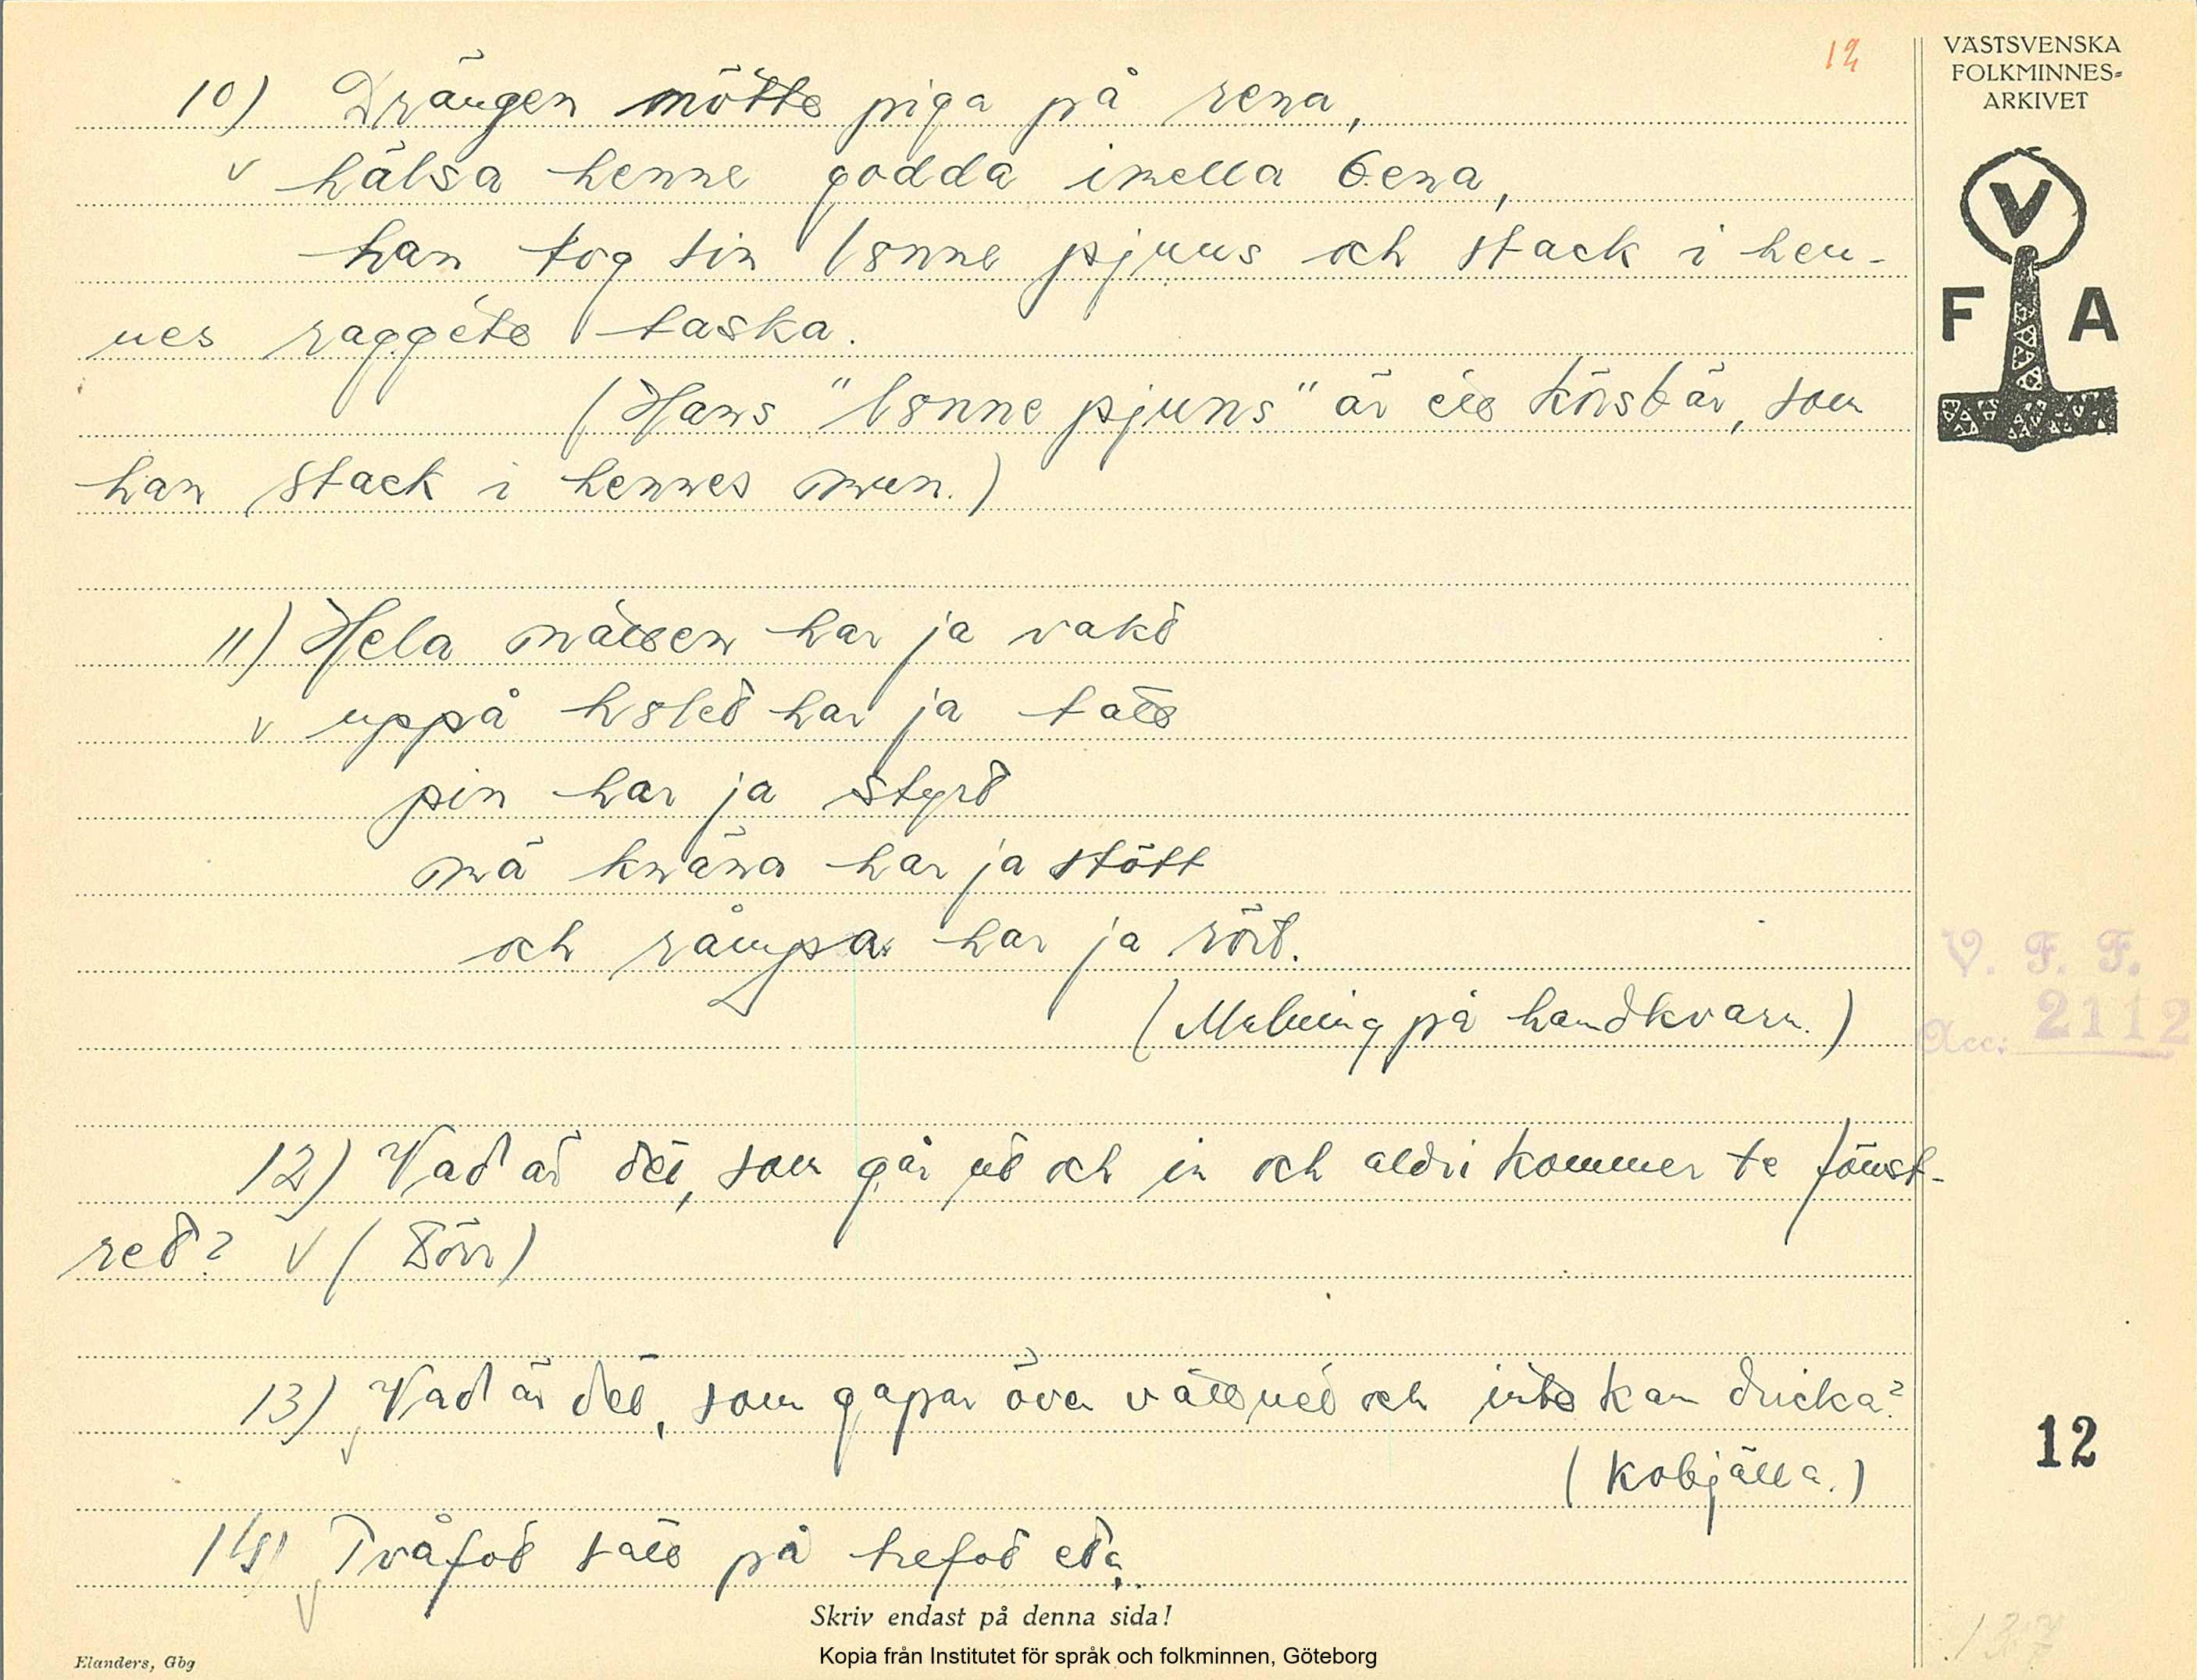 12
VÄSTSVENSKA
FOLKMINNES-
ARKIVET
V
F A
10) Drängen mötte piga på rena,
v hälsa henne godda imella bena,
han tog sin lonne pjuns och stack i hen-
nes raggete taska.
(Hans "lonne pjuns" är ett körsbär, som
han stack i hennes mun.)
11) Hela nätten har ja vakt
v uppå holet har ja tatt
pin har ja styrt
mä knäna har ja stött
och rumpa har ja rört.
(Malning på handkvarn.)
V. F. F.
Acc: 2112
12) Vad är det, som går ut och in och aldri kommer te fönst-
ret? v (Dörr)
13) Vad är det, som gapar över vattnet och inte kan dricka?
v
(Kobjälla.)
12
14) Tvåfot satt på trefot
v
Skriv endast på denna sida!
Kopia från Institutet för språk och folkminnen, Göteborg
Elanders, Gbg